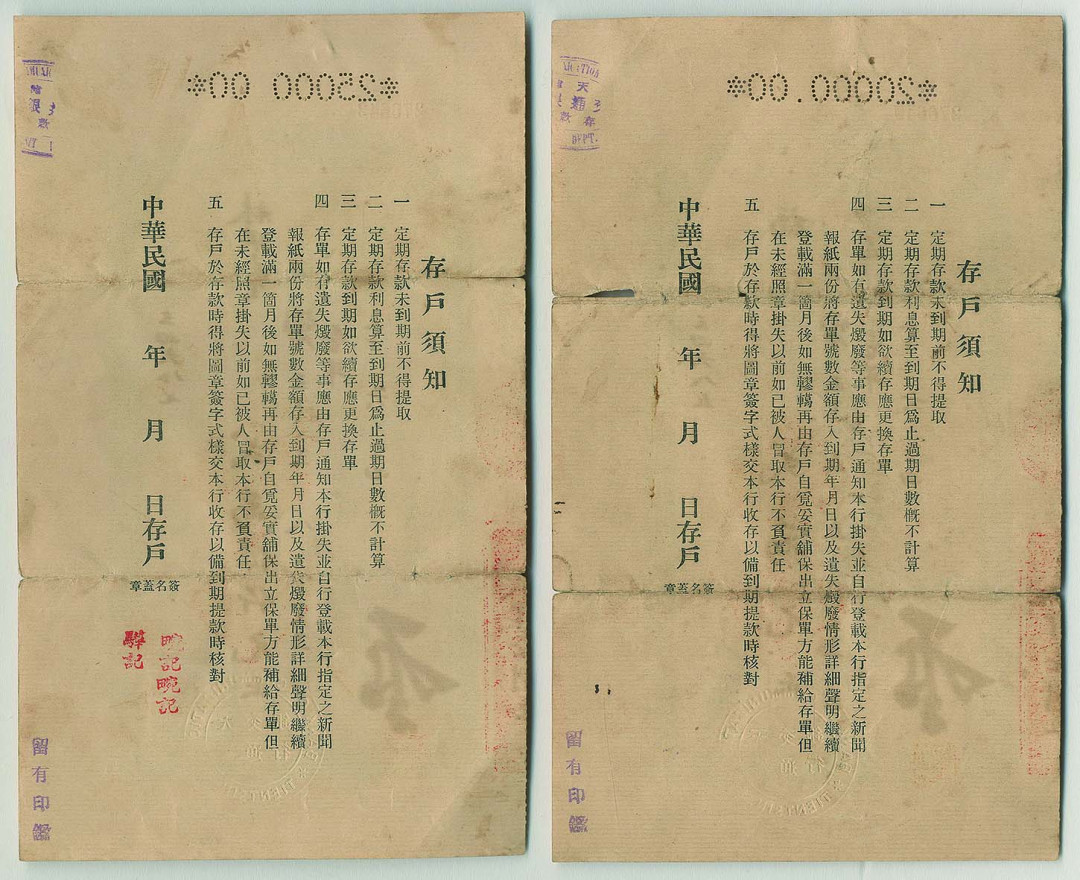 *25000 00*
存戶須知
一 定期存款未到期前不得提取
二 定期存款利息算至到期日爲止過期日數概不計算
三 定期存款到期如欲續存應更換存單
四 存單如有遺失燬廢等事應由存戶通知本行掛失並自行登載本行指定之新聞
報紙兩份將存單號數金額存入到期年月日以及遺失燬廢情形詳細聲明繼續
登載滿一箇月後如無轇轕再由存戶自覓妥實舖保出立保單方能補給存單但
在未經照章掛失以前如已被人冒取本行不負責任
五 存戶於存款時得將圖章簽字式樣交本行收存以備到期提款時核對
中華民國 年 月 日存戶
簽名蓋章
驊記
留有印鑑
*20000.00*
存戶須知
一 定期存款未到期前不得提取
二 定期存款利息算至到期日爲止過期日數概不計算
三 定期存款到期如欲續存應更換存單
四 存單如有遺失燬廢等事應由存戶通知本行掛失並自行登載本行指定之新聞
報紙兩份將存單號數金額存入到期年月日以及遺失燬廢情形詳細聲明繼續
登載滿一箇月後如無轇轕再由存戶自覓妥實舖保出立保單方能補給存單但
在未經照章掛失以前如已被人冒取本行不負責任
五 存戶於存款時得將圖章簽字式樣交本行收存以備到期提款時核對
中華民國 年 月 日存戶
簽名蓋章
留有印鑑